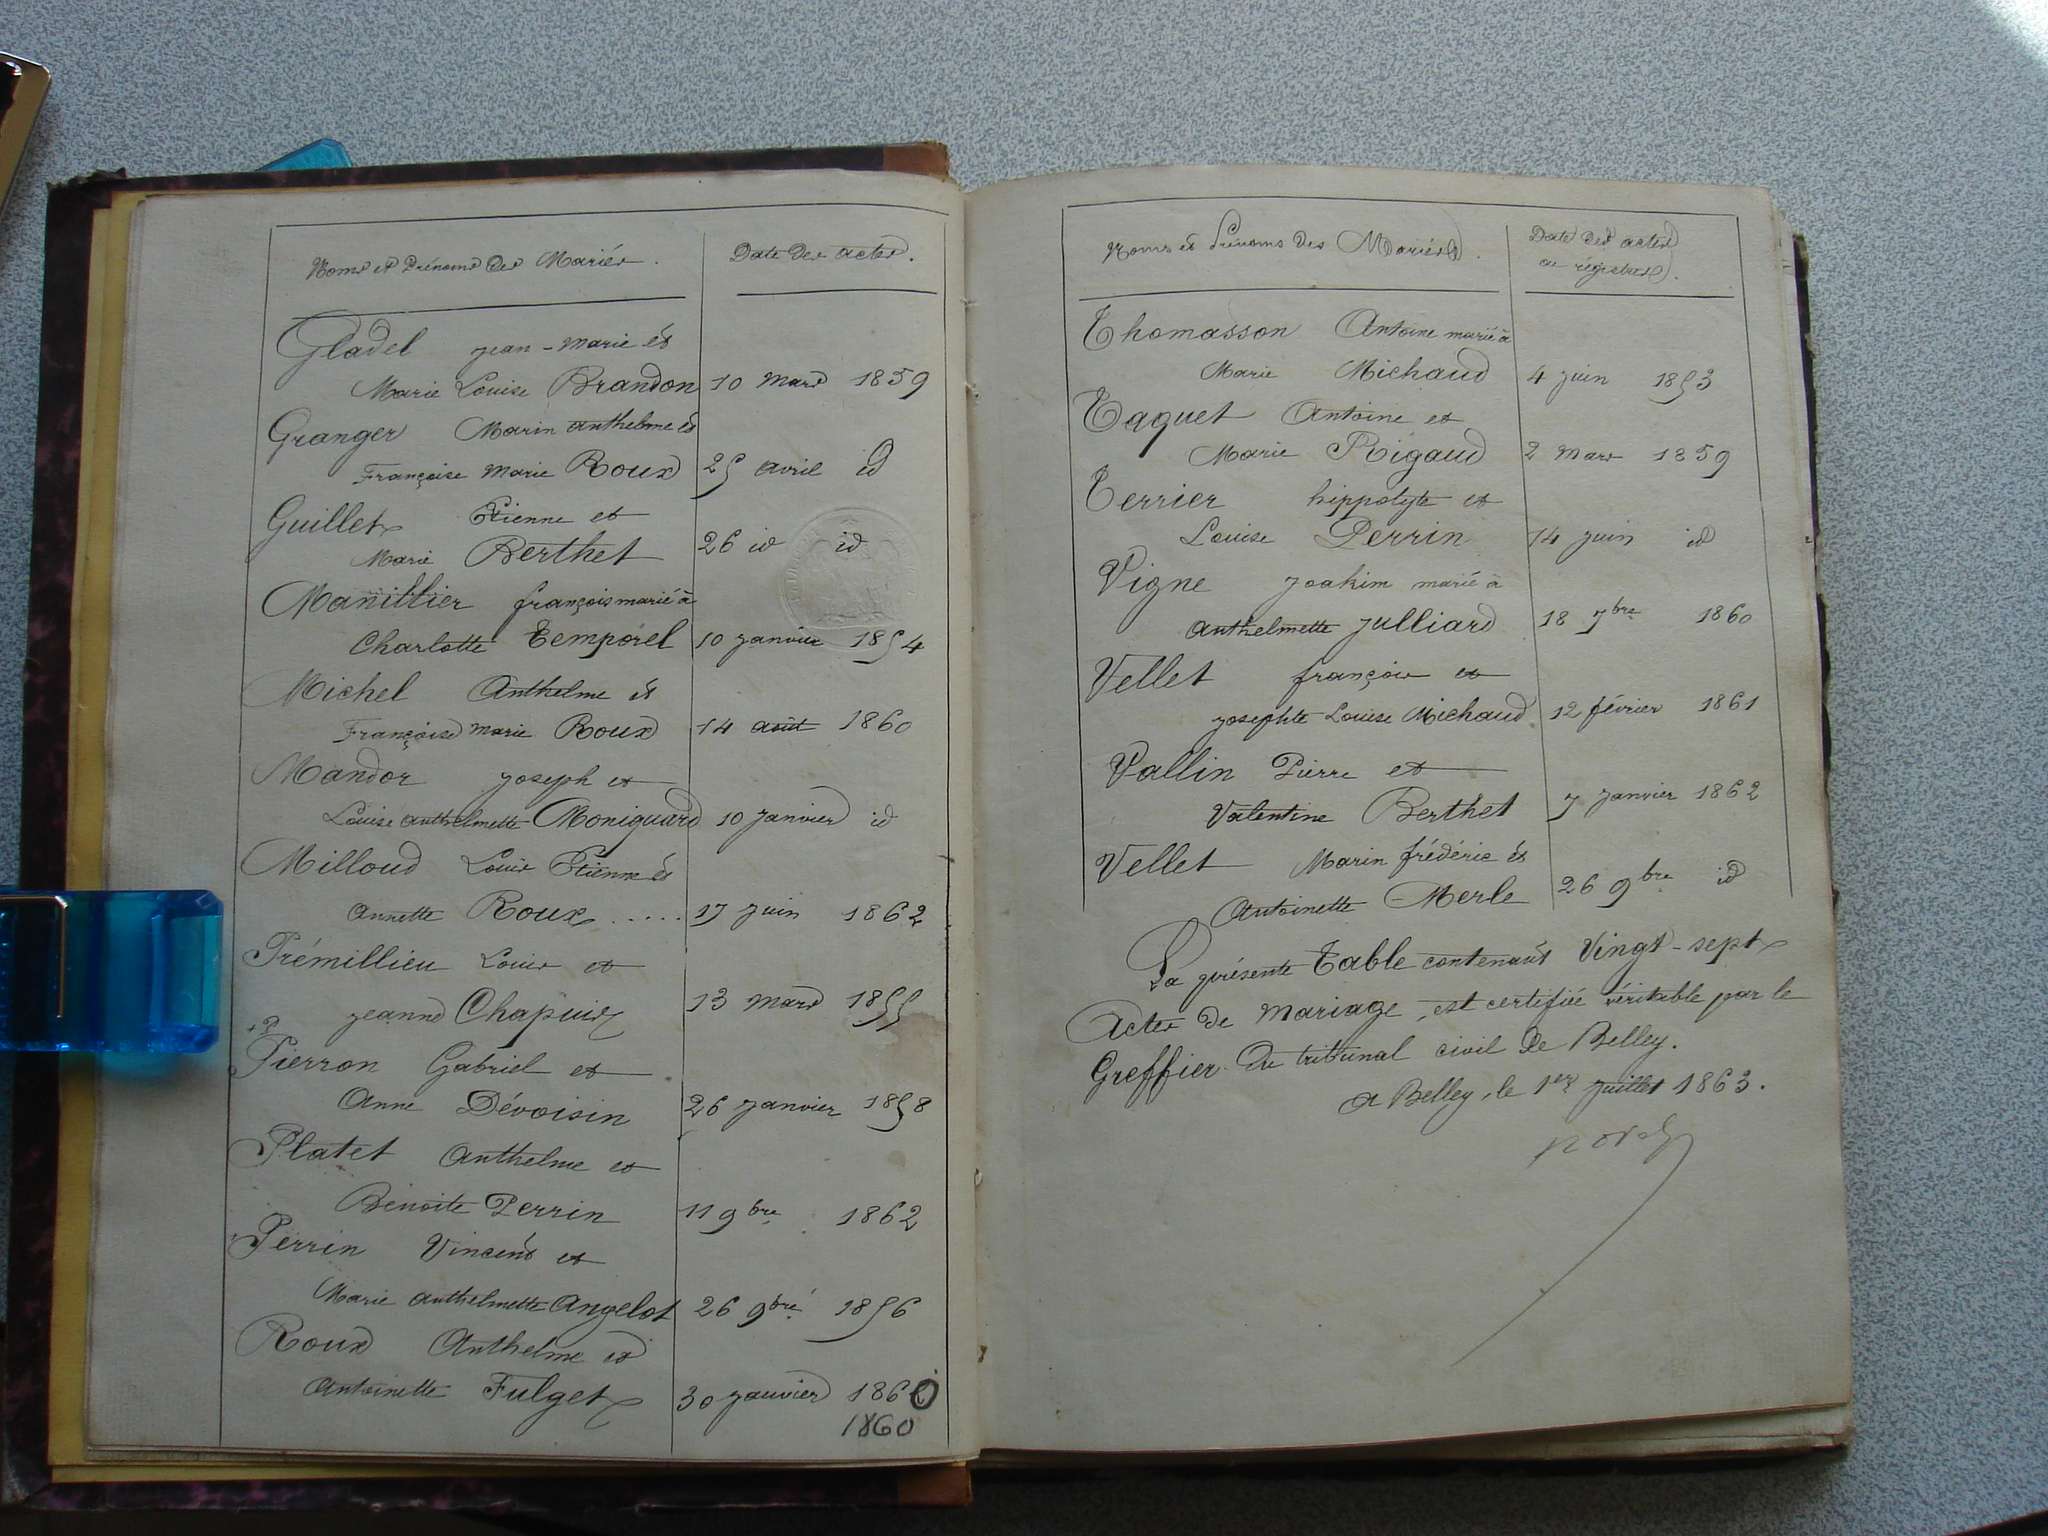 Noms et Prénoms des Mariés.
Date des actes.
Gladel jean-marie et
Marie Louise Brandon 10 mars 1859
Granger Marin anthelme et
Françoise Marie Roux 25 avril id
Guillet Etienne et
Marie Berthet 26 id id
Manillier françois marié à
Charlotte Temporel 10 janvier 1854
Michel Anthelme et
Françoise Marie Roux 14 août 1860
Mandor joseph et
Louise anthelmette Moniguard 10 janvier id
Milloud Louis Etienne et
annette Roux ..... 17 juin 1862
Prémillieu Louis et
jeanne Chapuis 13 mars 1855
Pierron Gabriel et
Anne Dévoisin 26 janvier 1858
Platet Anthelme et
Benoite Perrin 11 9bre 1862
Perrin Vincent et
Marie anthelmette Angelot 26 9bre 1856
Roux Anthelme et
Antoinette Fulget 30 janvier 1860
1860
Noms et Prénoms des Mariés.
Date des actes
ou régistres.
Thomasson Antoine marié à
Marie Michaud 4 juin 1853
Taquet Antoine et
Marie Rigaud 2 Mars 1859
Terrier hippolyte et
Louise Perrin 14 juin id
Vigne joakim marié à
Anthelmette Julliard 18 7bre 1860
Vellet françois et
josephte Louise Michaud 12 février 1861
Vallin Pierre et
Valentine Berthet 7 janvier 1862
Vellet Marin frédéric et
Antoinette Merle 26 9bre id
La présente Table contenant Vingt-sept
Actes de Mariage, est certifiée véritable par le
Greffier du tribunal civil de Belley.
a Belley, le 1er juillet 1863.